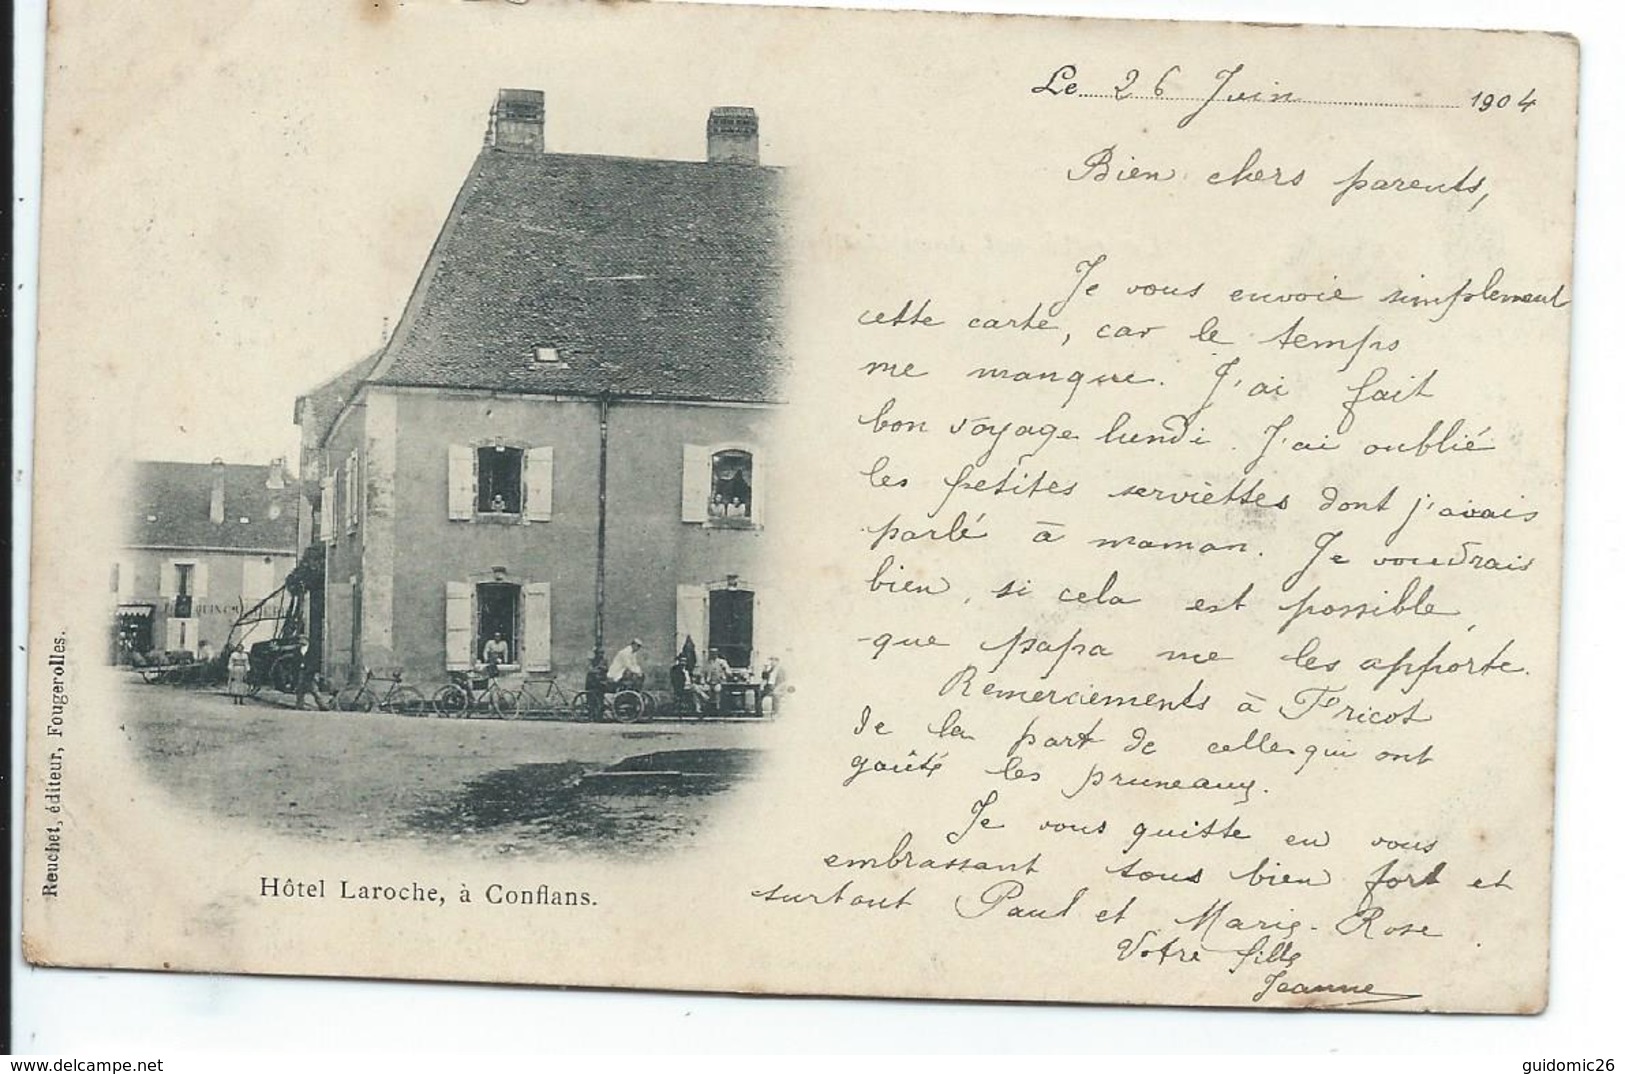 Le 26 Juin 1904
Bien chers parents,
Je vous envoie simplement
cette carte, car le temps
me manque. J'ai fait
bon voyage lundi. J'ai oublié
les petites serviettes dont j'avais
parlé à maman. Je voudrais
bien, si cela est possible,
que papa me les apporte.
Remerciements à Fricot
de la part de celles qui ont
goûté les pruneaux.
Je vous quitte en vous
embrassant tous bien fort et
surtout Paul et Marie-Rose.
Votre fille
Jeanne
Hôtel Laroche, à Conflans.
Reuchet, éditeur, Fougerolles.
delcampe.net
guidomic26